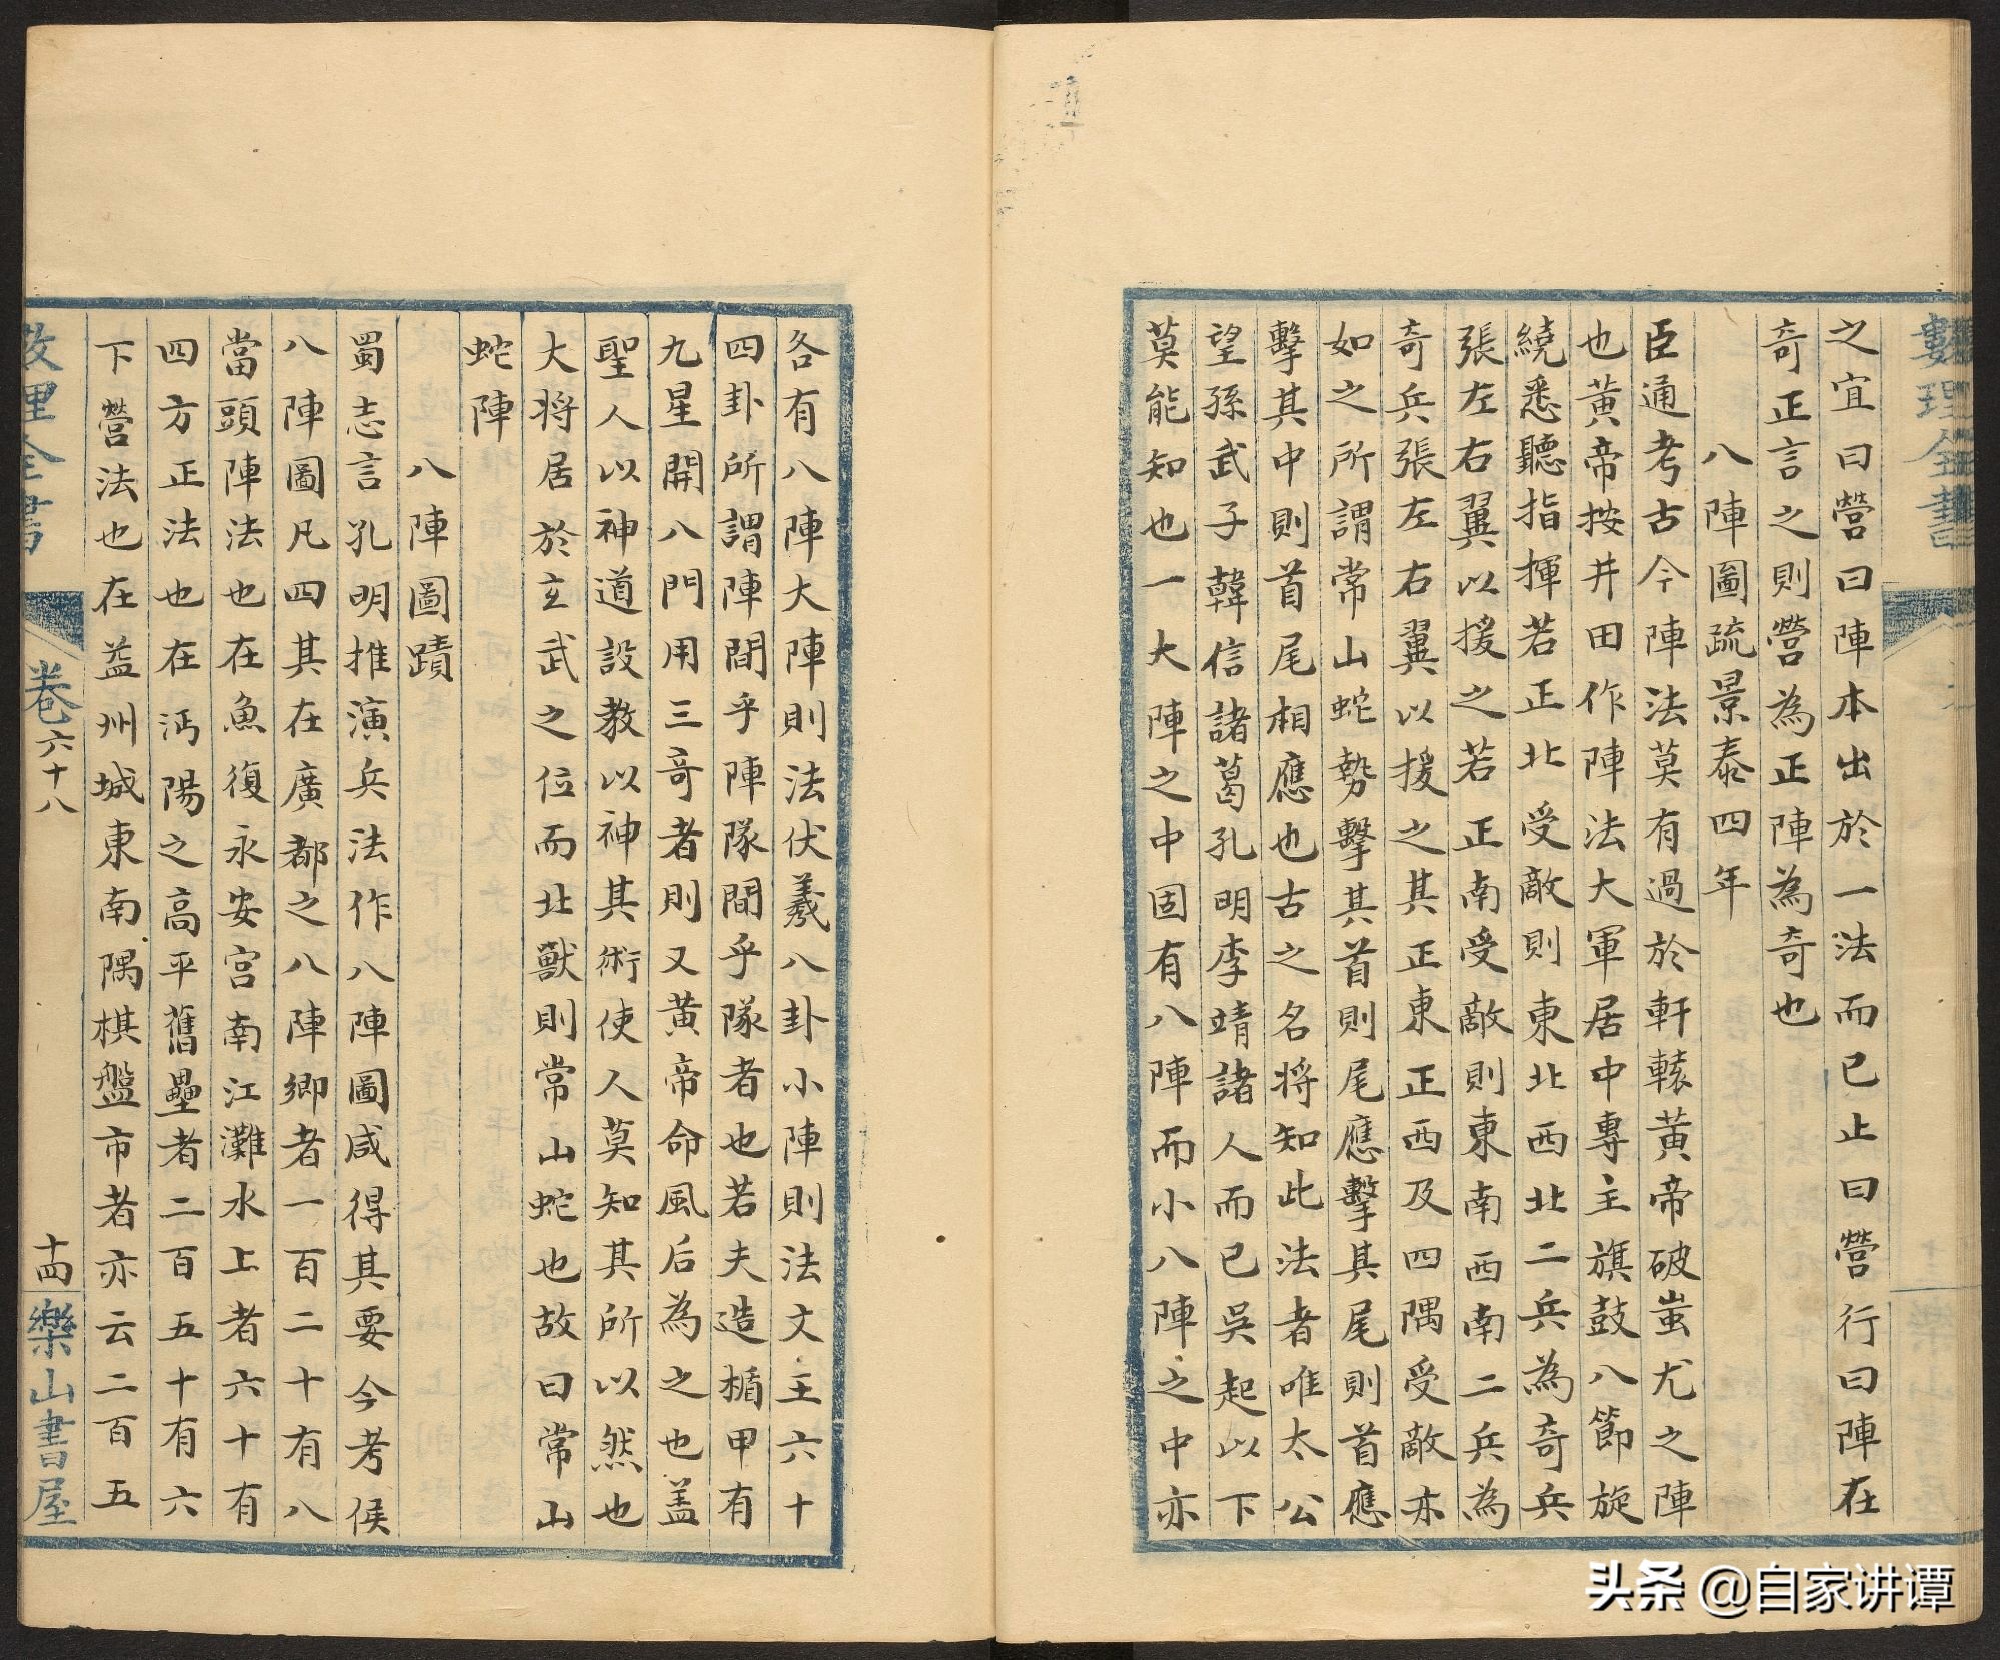 數理全書
之宜曰營曰陣本出於一法而已止曰營行曰陣在
奇正言之則營為正陣為奇也
八陣圖疏景泰四年
臣通考古今陣法莫有過於軒轅黃帝破蚩尤之陣
也黃帝按井田作陣法大軍居中專主旗鼓八節旋
繞悉聽指揮若正北受敵則東北西北二兵為奇兵
張左右翼以援之若正南受敵則東南西南二兵為
奇兵張左右翼以援之其正東正西及四隅受敵亦
如之所謂常山蛇勢擊其首則尾應擊其尾則首應
擊其中則首尾相應也古之名將知此法者唯太公
望孫武子韓信諸葛孔明李靖諸人而已吳起以下
莫能知也一大陣之中固有八陣而小八陣之中亦
各有八陣大陣則法伏羲八卦小陣則法文王六十
四卦所謂陣間乎陣隊間乎隊者也若夫造楯甲有
九星開八門用三奇者則又黃帝命風后為之也盖
聖人以神道設教以神其術使人莫知其所以然也
大將居於玄武之位而北獸則常山蛇也故曰常山
蛇陣
八陣圖蹟
蜀志言孔明推演兵法作八陣圖咸得其要今考侯
八陣圖凡四其在廣都之八陣鄉者一百二十有八
當頭陣法也在魚復永安宮南江灘水上者六十有
四方正法也在沔陽之高平舊壘者二百五十有六
下營法也在益州城東南隅棋盤市者亦云二百五
數理全書
卷六十八
十四
樂山書屋
头条 @自家讲谭